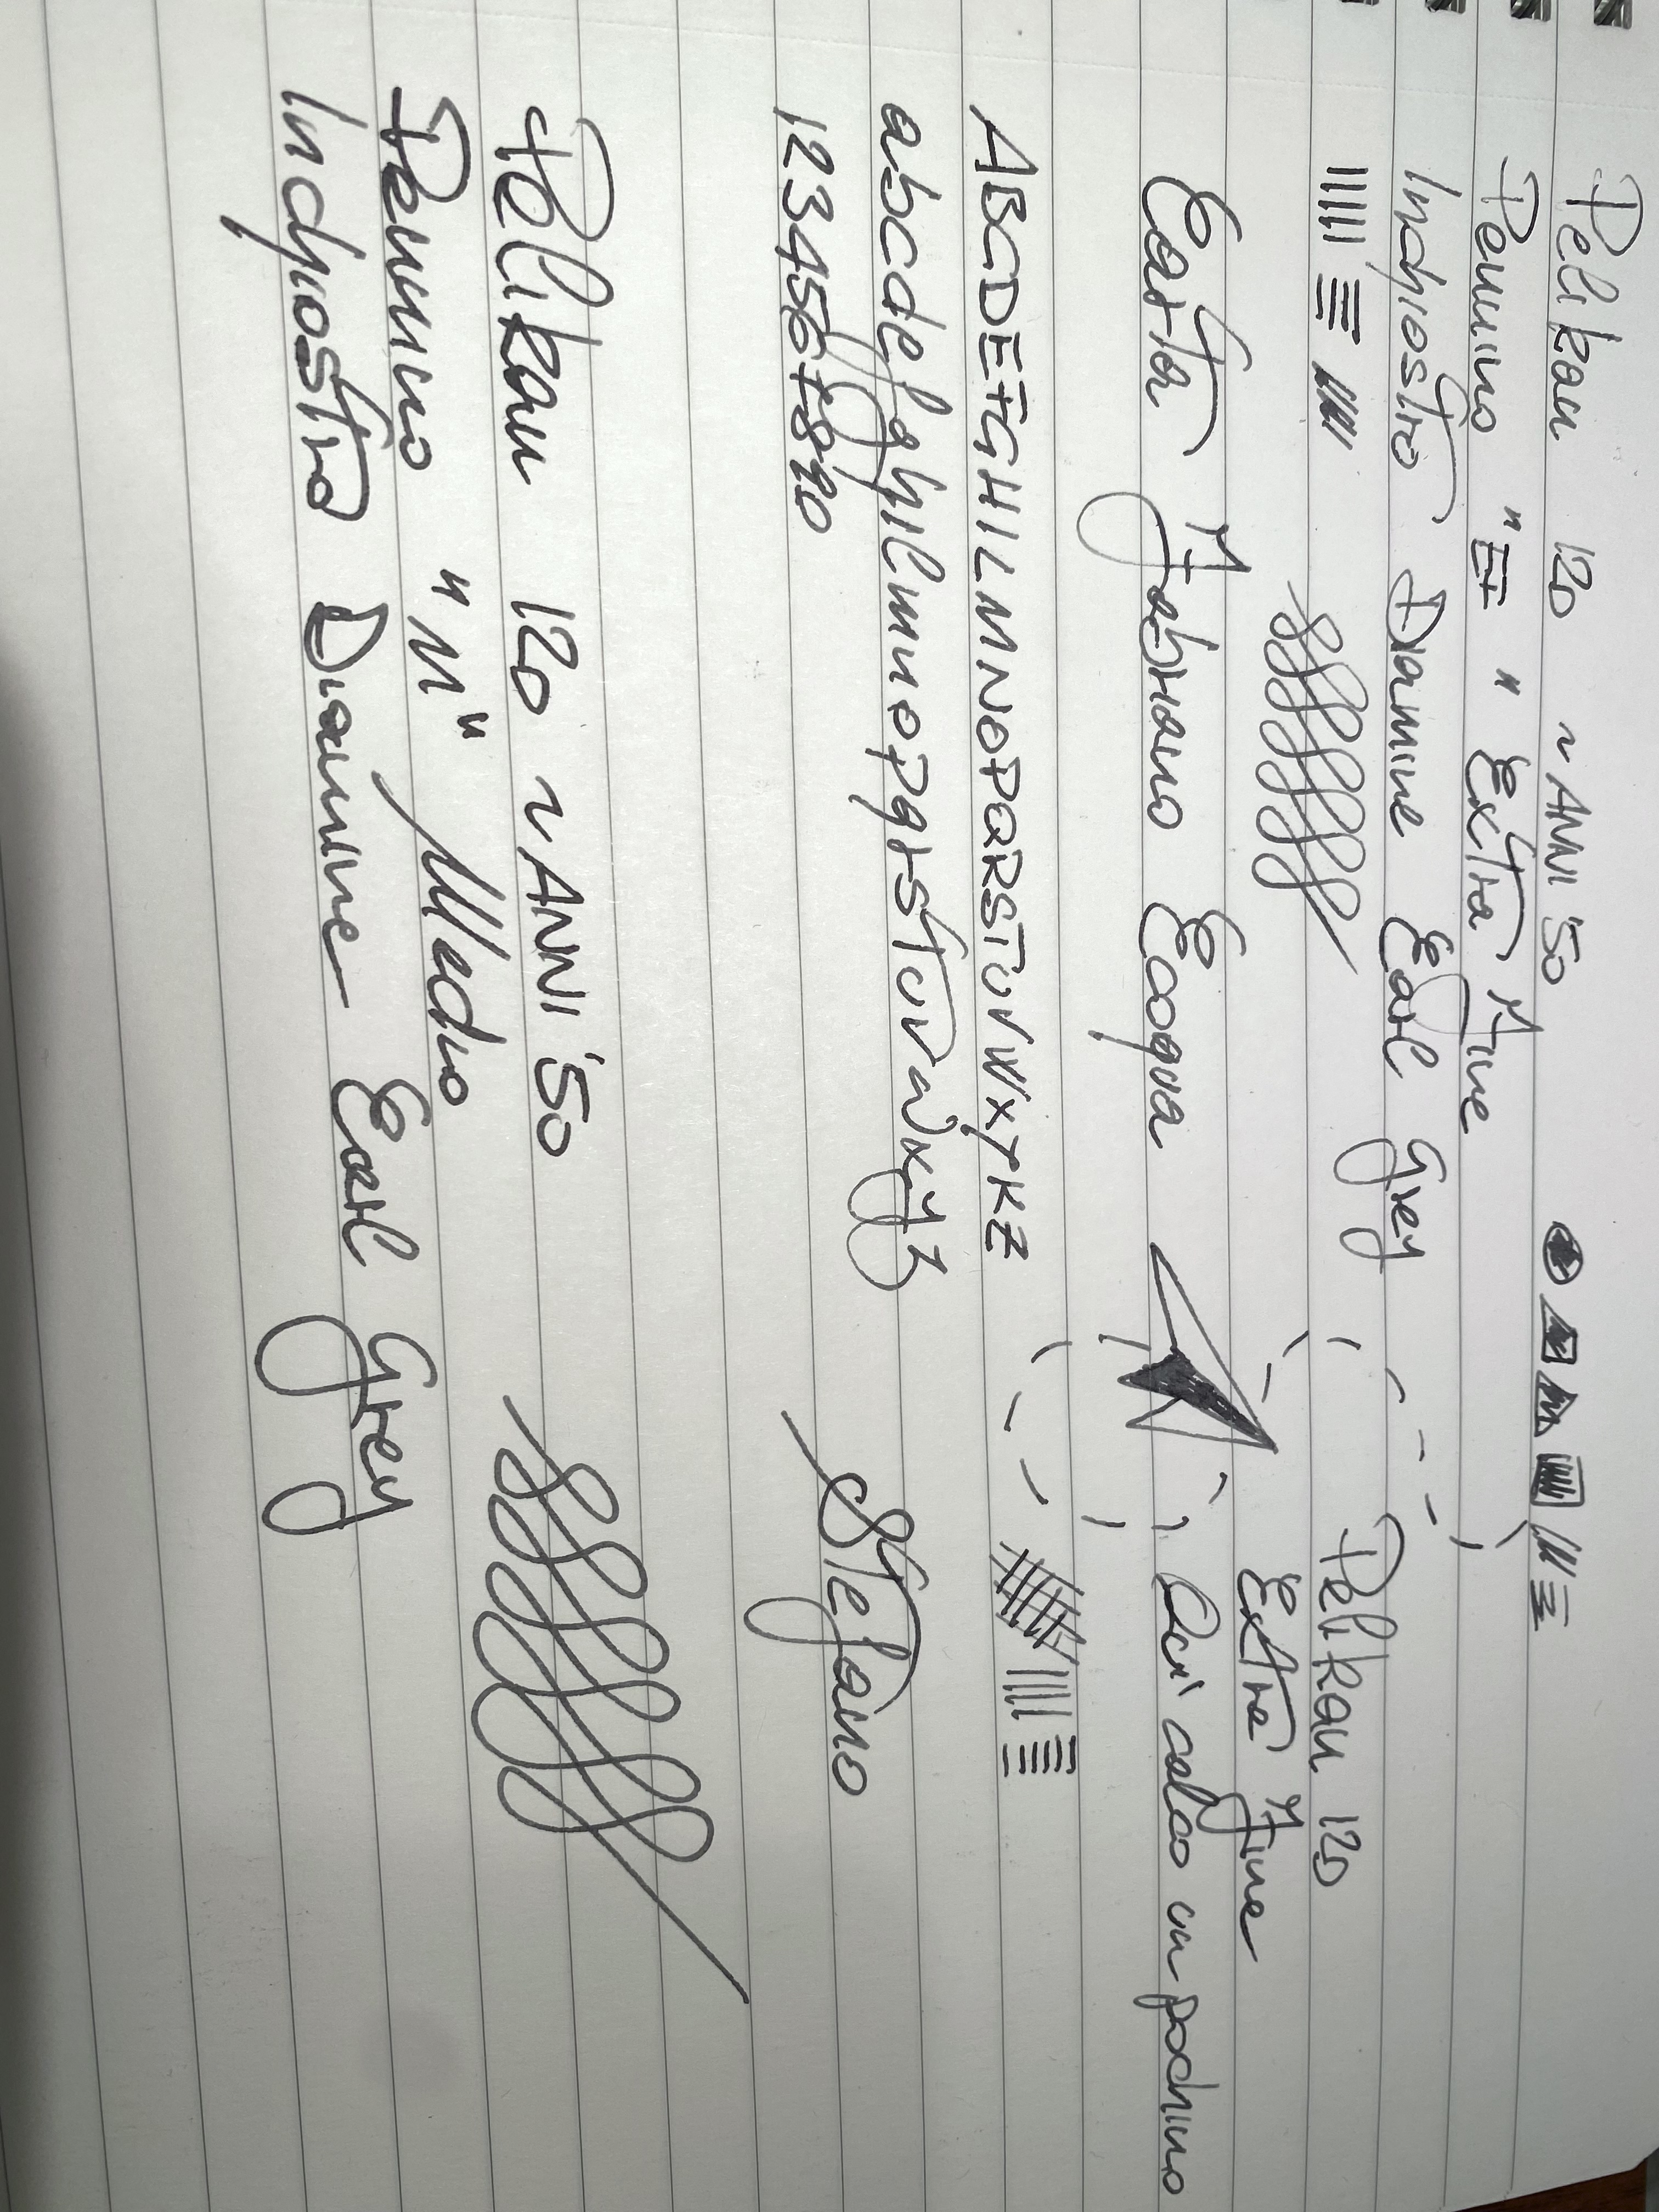 Pelikan 120 ~ ANNI '50
Pennino "EF" Extra Fine
Inchiostro Diamine Earl Grey
Pelikan 120
Extra Fine
Carta Fabriano Ecoqua
Qui calco un pochino
ABCDEFGHILMNOPQRSTUVWXYKZ
abcdefghilmnopqrstuvwxyz
1234567890
Stefano
Pelikan 120 ~ ANNI '50
Pennino "M" Medio
Inchiostro Diamine Earl Grey